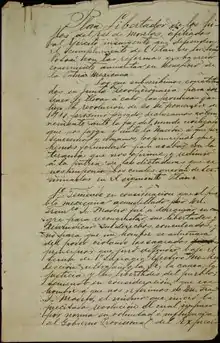 Plan Libertador de los hi-
jos del Estado de Morelos, afiliados
al Ejército insurgente que defiende
el cumplimiento del Plan de San Luis
Potosí con las reformas que ha creido
conveniente aumentar en beneficio de
la Patria Mexicana.
Los que subscribimos constitui-
dos en Junta Revolucionaria para sos-
tener y llevar a cabo las promesas que
hizo la revolución de 20 de noviembre de
1910, próximo pasado, declaramos solem-
nemente ante la faz del mundo civilizado
que nos juzga y ante la Nación a que per-
tenecemos y amamos, los propósitos que
hemos formulado para acabar con la
tiranía que nos oprime y redimir a
la Patria de las dictaduras que
se nos imponen las cuales quedan de-
terminadas en el siguiente Plan:
1º Teniendo en consideración que el pue-
blo mexicano acaudillado por Dn.
Fco. I. Madero fué a derramar su san-
gre para reconquistar sus libertades y
reivindicar sus derechos conculcados y
no para que un hombre se adueñara
del poder violando los sagrados prin-
cipios que juró defender bajo el
lema de "Sufragio Efectivo No Re-
elección" ultrajando la fé, la causa, la
justicia y las libertades del pueblo;
teniendo en consideración que ese
hombre a que nos referimos es Dn. Fco.
I. Madero, el mismo que inició la
precitada revolución el cual impuso
por norma su voluntad e influencia
al Gobierno Provisional del ex Presi-